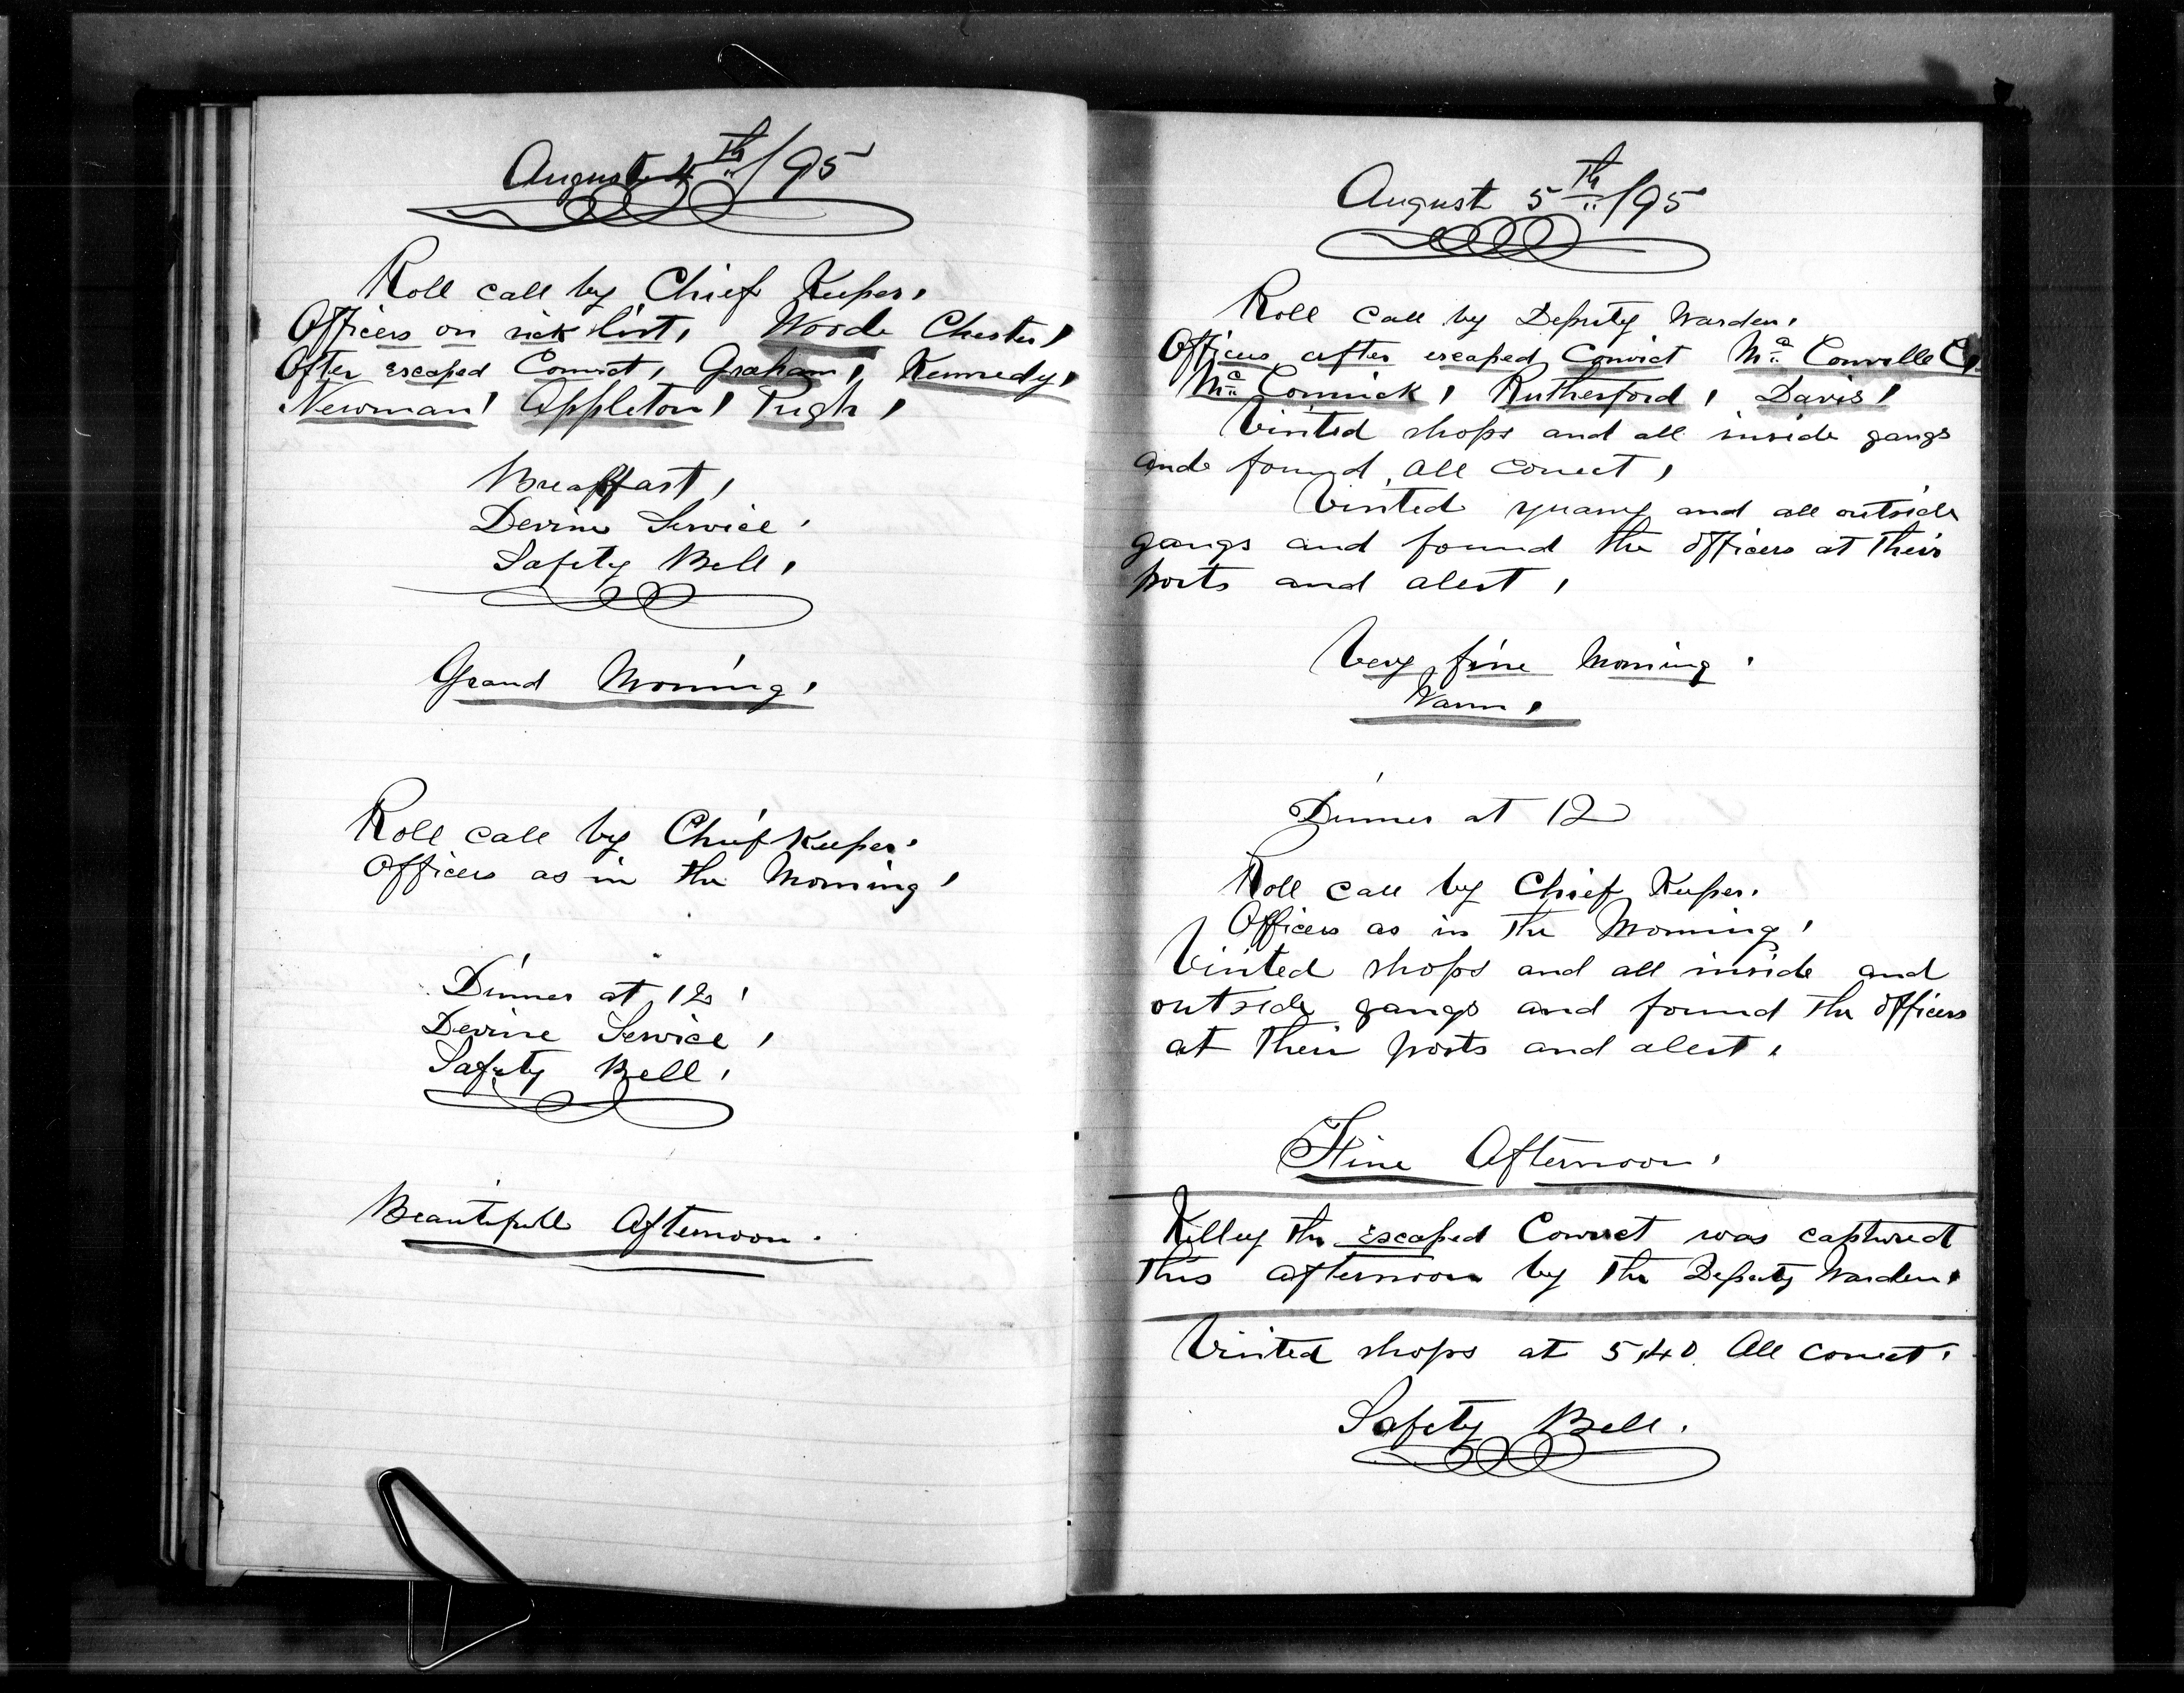 August 4th/95
Roll call by Chief Keeper,
Officers on sick list, Woods Chester,
After escaped Convict, Graham, Kennedy,
Newman, Appleton, Pugh,
Breakfast,
Devine Service,
Safety Bell,
Grand Morning,
Roll call by Chief Keeper,
Officers as in the Morning,
Dinner at 12,
Devine Service,
Safety Bell,
Beautifull Afternoon.
August 5th/95
Roll call by Deputy Warden,
Officers after escaped Convict Mc Conville C,
Mc Cormick, Rutherford, Davis,
Visited shops and all inside gangs
and found all correct,
Visited quarry and all outside
gangs and found the officers at their
posts and alert,
Very fine Morning,
Warm,
Dinner at 12
Roll call by Chief Keeper.
Officers as in the Morning,
Visited shops and all inside and
outside gangs and found the officers
at their posts and alert,
Fine Afternoon,
Killey the escaped Convict was captured
this afternoon by the Deputy Warden,
Visited shops at 5,40. All correct,
Safety Bell.